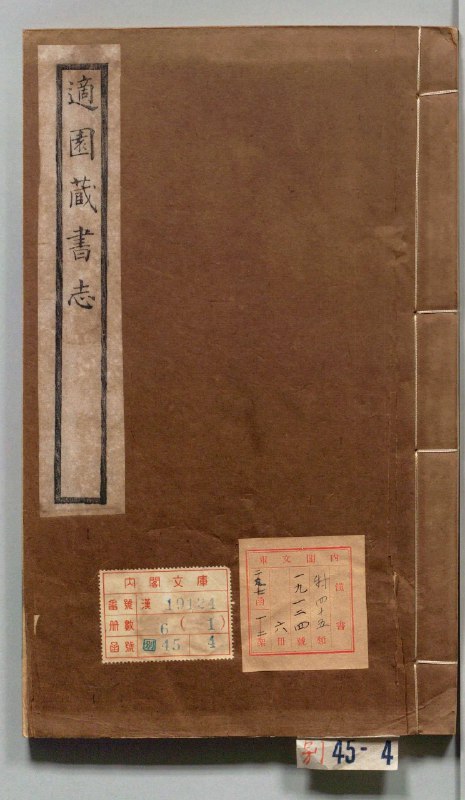 適園藏書志
内閣文庫
番號 漢 19124
冊數 6 (1)
函號 別 45 4
内閣文庫
漢書
特四十五類
一九一二四號
六冊
函
架
別 45-4